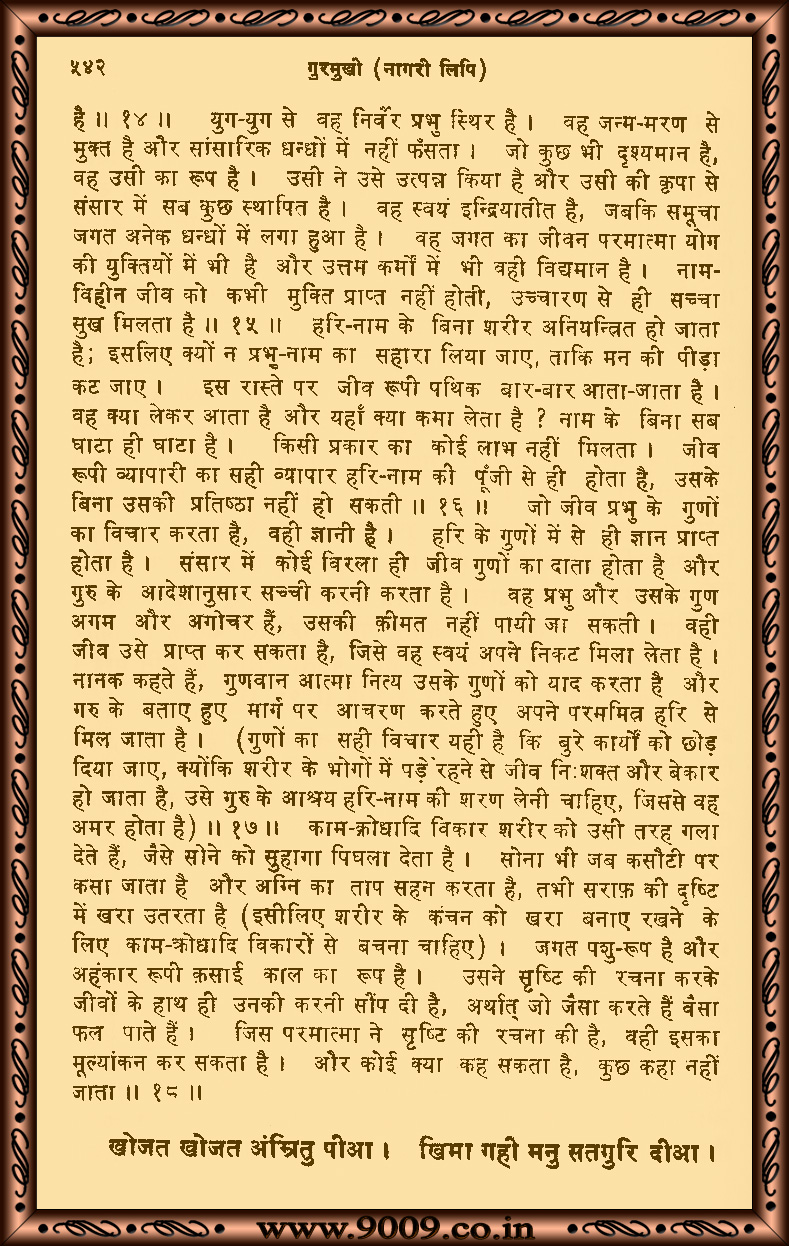 ५४२ गुरमुखी (नागरी लिपि)
है ॥ १४ ॥ युग-युग से वह निर्वैर प्रभु स्थिर है । वह जन्म-मरण से
मुक्त है और सांसारिक धन्धों में नहीं फँसता । जो कुछ भी दृश्यमान है,
वह उसी का रूप है । उसी ने उसे उत्पन्न किया है और उसी की कृपा से
संसार में सब कुछ स्थापित है । वह स्वयं इन्द्रियातीत है, जबकि समूचा
जगत अनेक धन्धों में लगा हुआ है । वह जगत का जीवन परमात्मा योग
की युक्तियों में भी है और उत्तम कर्मों में भी वही विद्यमान है । नाम-
विहीन जीव को कभी मुक्ति प्राप्त नहीं होती, उच्चारण से ही सच्चा
सुख मिलता है ॥ १५ ॥ हरि-नाम के बिना शरीर अनियन्त्रित हो जाता
है; इसलिए क्यों न प्रभु-नाम का सहारा लिया जाए, ताकि मन की पीड़ा
कट जाए । इस रास्ते पर जीव रूपी पथिक बार-बार आता-जाता है ।
वह क्या लेकर आता है और यहाँ क्या कमा लेता है ? नाम के बिना सब
घाटा ही घाटा है । किसी प्रकार का कोई लाभ नहीं मिलता । जीव
रूपी व्यापारी का सही व्यापार हरि-नाम की पूँजी से ही होता है, उसके
बिना उसकी प्रतिष्ठा नहीं हो सकती ॥ १६ ॥ जो जीव प्रभु के गुणों
का विचार करता है, वही ज्ञानी है । हरि के गुणों में से ही ज्ञान प्राप्त
होता है । संसार में कोई विरला ही जीव गुणों का दाता होता है और
गुरु के आदेशानुसार सच्ची करनी करता है । वह प्रभु और उसके गुण
अगम और अगोचर हैं, उसकी क़ीमत नहीं पायी जा सकती । वही
जीव उसे प्राप्त कर सकता है, जिसे वह स्वयं अपने निकट मिला लेता है ।
नानक कहते हैं, गुणवान आत्मा नित्य उसके गुणों को याद करता है और
गरु के बताए हुए मार्ग पर आचरण करते हुए अपने परममित्र हरि से
मिल जाता है । (गुणों का सही विचार यही है कि बुरे कार्यों को छोड़
दिया जाए, क्योंकि शरीर के भोगों में पड़े रहने से जीव निःशक्त और बेकार
हो जाता है, उसे गुरु के आश्रय हरि-नाम की शरण लेनी चाहिए, जिससे वह
अमर होता है) ॥ १७ ॥ काम-क्रोधादि विकार शरीर को उसी तरह गला
देते हैं, जैसे सोने को सुहागा पिघला देता है । सोना भी जब कसौटी पर
कसा जाता है और अग्नि का ताप सहन करता है, तभी सराफ़ की दृष्टि
में खरा उतरता है (इसीलिए शरीर के कंचन को खरा बनाए रखने के
लिए काम-क्रोधादि विकारों से बचना चाहिए) । जगत पशु-रूप है और
अहंकार रूपी क़साई काल का रूप है । उसने सृष्टि की रचना करके
जीवों के हाथ ही उनकी करनी सौंप दी है, अर्थात् जो जैसा करते हैं वैसा
फल पाते हैं । जिस परमात्मा ने सृष्टि की रचना की है, वही इसका
मूल्यांकन कर सकता है । और कोई क्या कह सकता है, कुछ कहा नहीं
जाता ॥ १८ ॥
खोजत खोजत अंम्रितु पीआ । खिमा गही मनु सतगुरि दीआ ।
www.9009.co.in